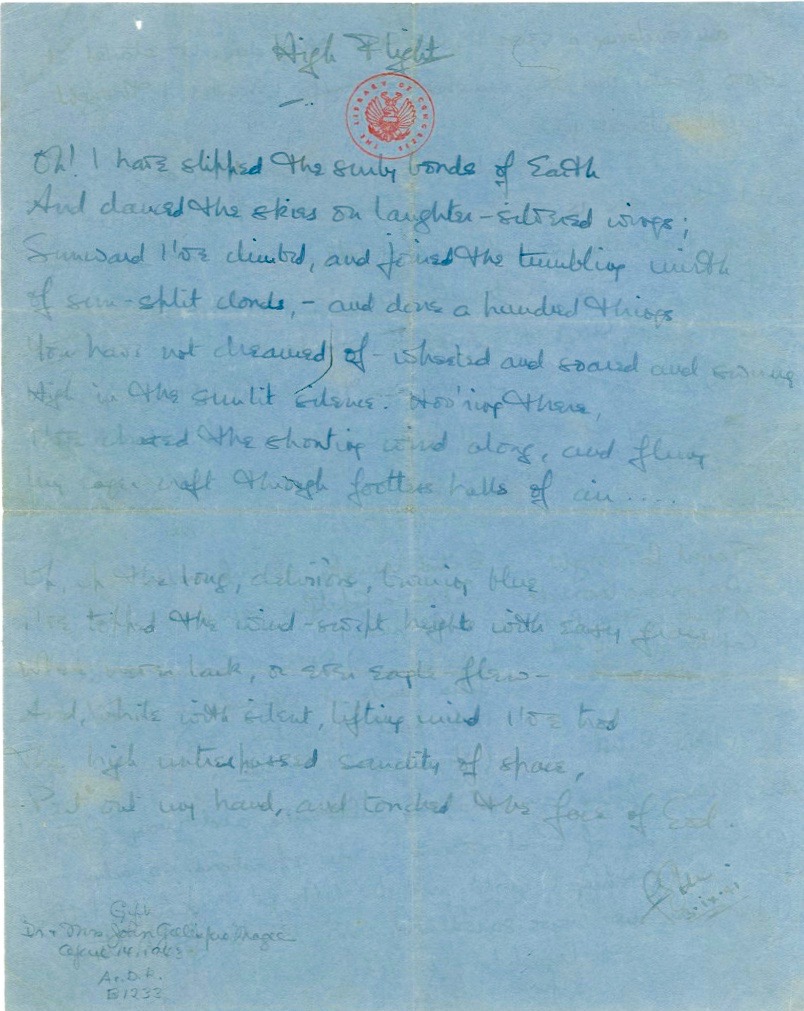 High Flight
THE LIBRARY OF CONGRESS
Oh! I have slipped the surly bonds of Earth
And danced the skies on laughter-silvered wings;
Sunward I've climbed, and joined the tumbling mirth
of sun-split clouds, – and done a hundred things
You have not dreamed of – wheeled and soared and swung
High in the sunlit silence. Hov'ring there,
I've chased the shouting wind along, and flung
My eager craft through footless halls of air.....
Up, up the long, delirious, burning blue
I've topped the wind-swept heights with easy grace
Where never lark, or even eagle flew –
And, while with silent, lifting mind I've trod
The high untrespassed sanctity of space,
Put out my hand, and touched the face of God.
Gift
Dr. & Mrs. John Gillespie Magee
April 14, 1943
A.D.F.